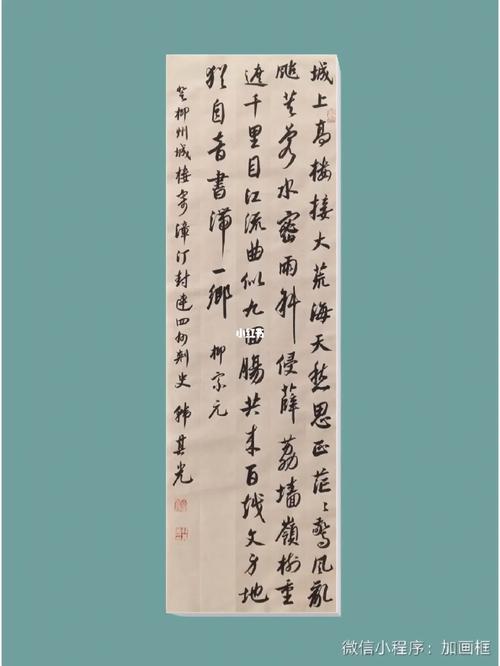 城上高楼接大荒海天愁思正茫々驚风亂
飐芙蓉水密雨斜侵薜荔墙嶺树重
遮千里目江流曲似九回腸共来百越文身地
猶自音書滞一鄉 柳宗元
登柳州城楼寄漳汀封连四州刺史 韩其光
小红书
微信小程序：加画框